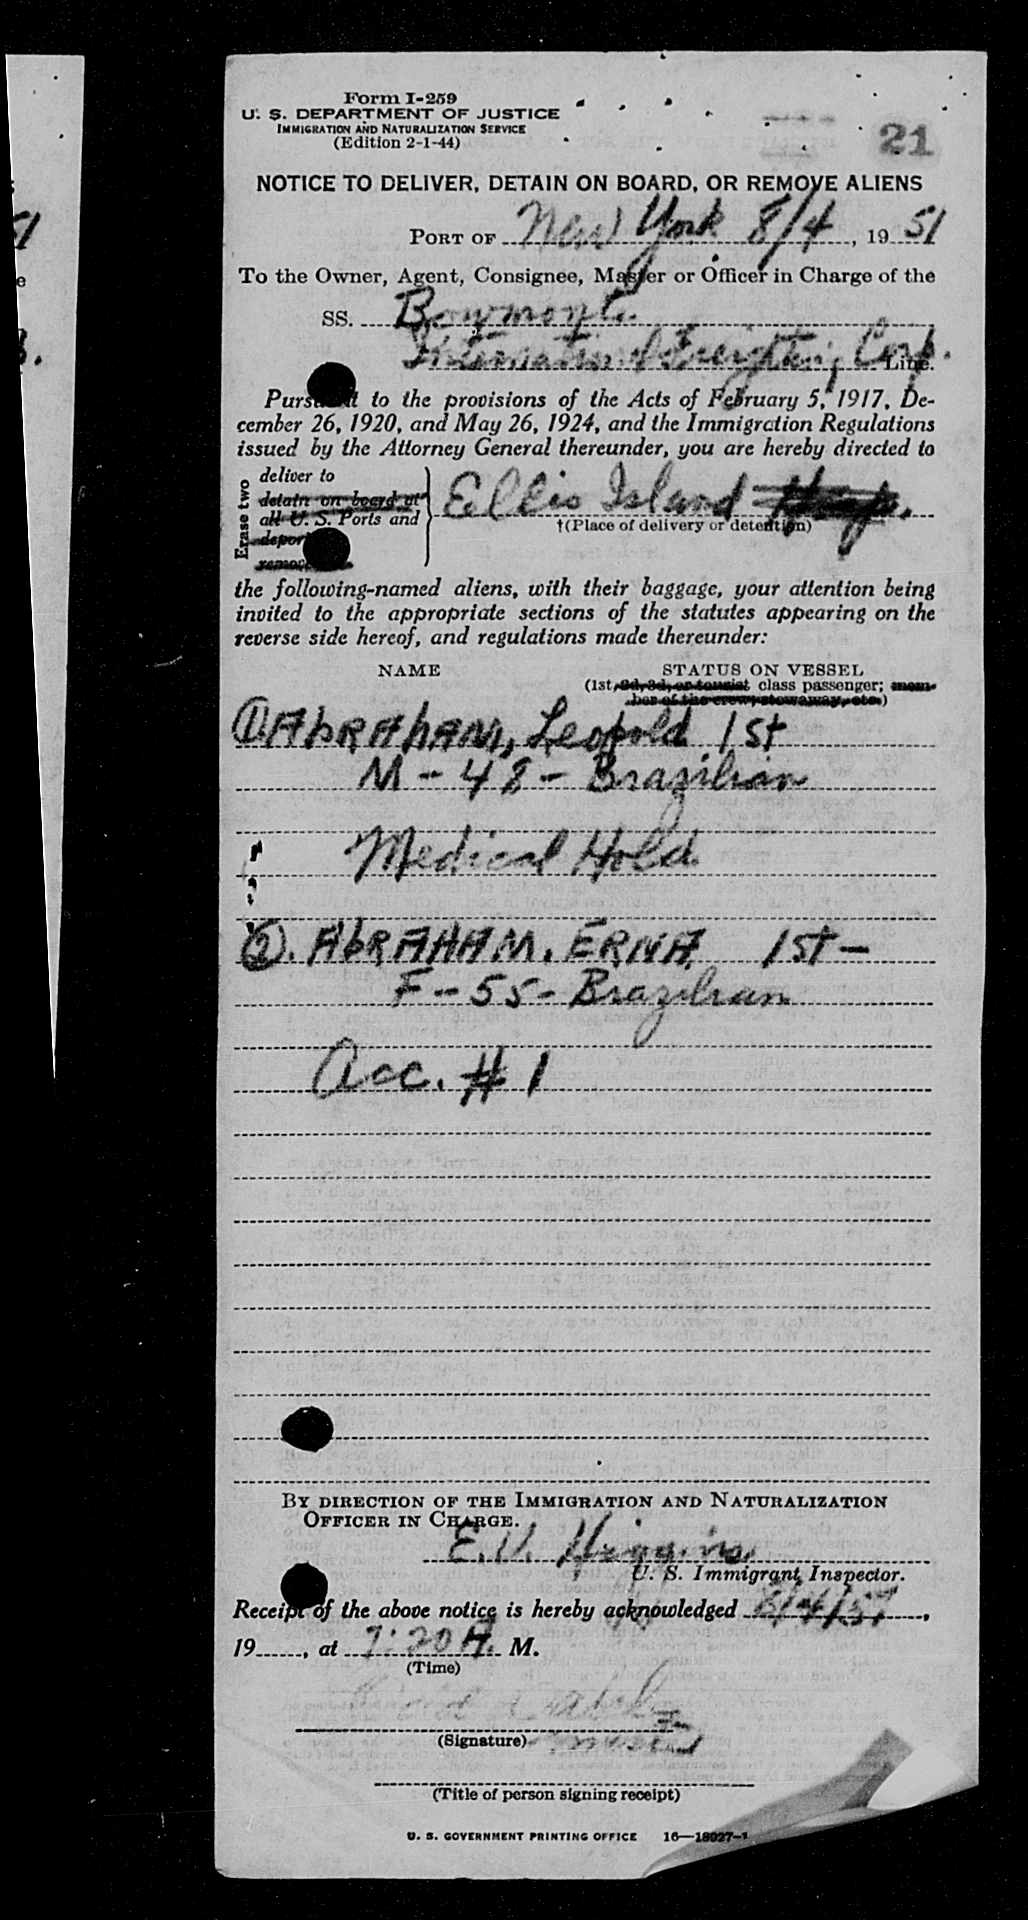 Form I-259
U. S. DEPARTMENT OF JUSTICE
IMMIGRATION AND NATURALIZATION SERVICE
(Edition 2-1-44)
21
NOTICE TO DELIVER, DETAIN ON BOARD, OR REMOVE ALIENS
PORT OF New York 8/4, 19 51
To the Owner, Agent, Consignee, Master or Officer in Charge of the
SS. Bowmont.
International Freighting Corp. Line.
Pursuant to the provisions of the Acts of February 5, 1917, De-
cember 26, 1920, and May 26, 1924, and the Immigration Regulations
issued by the Attorney General thereunder, you are hereby directed to
Erase two
deliver to
detain on board at
all U. S. Ports and
deport
remove
Ellis Island
†(Place of delivery or detention)
the following-named aliens, with their baggage, your attention being
invited to the appropriate sections of the statutes appearing on the
reverse side hereof, and regulations made thereunder:
NAME STATUS ON VESSEL
(1st, 2d, 3d, or tourist class passenger; mem-
ber of the crew; stowaway, etc.)
(1). ABRAHAM, Leopold 1st
M - 48 - Brazilian
Medical Hold.
(2). ABRAHAM. ERNA 1st -
F - 55 - Brazilian
Acc. # 1
BY DIRECTION OF THE IMMIGRATION AND NATURALIZATION
OFFICER IN CHARGE.
E. V. Higgins
U. S. Immigrant Inspector.
Receipt of the above notice is hereby acknowledged 8/4/51,
19......, at 7:20 A. M.
(Time)
(Signature)
(Title of person signing receipt)
U. S. GOVERNMENT PRINTING OFFICE 16—18027-1